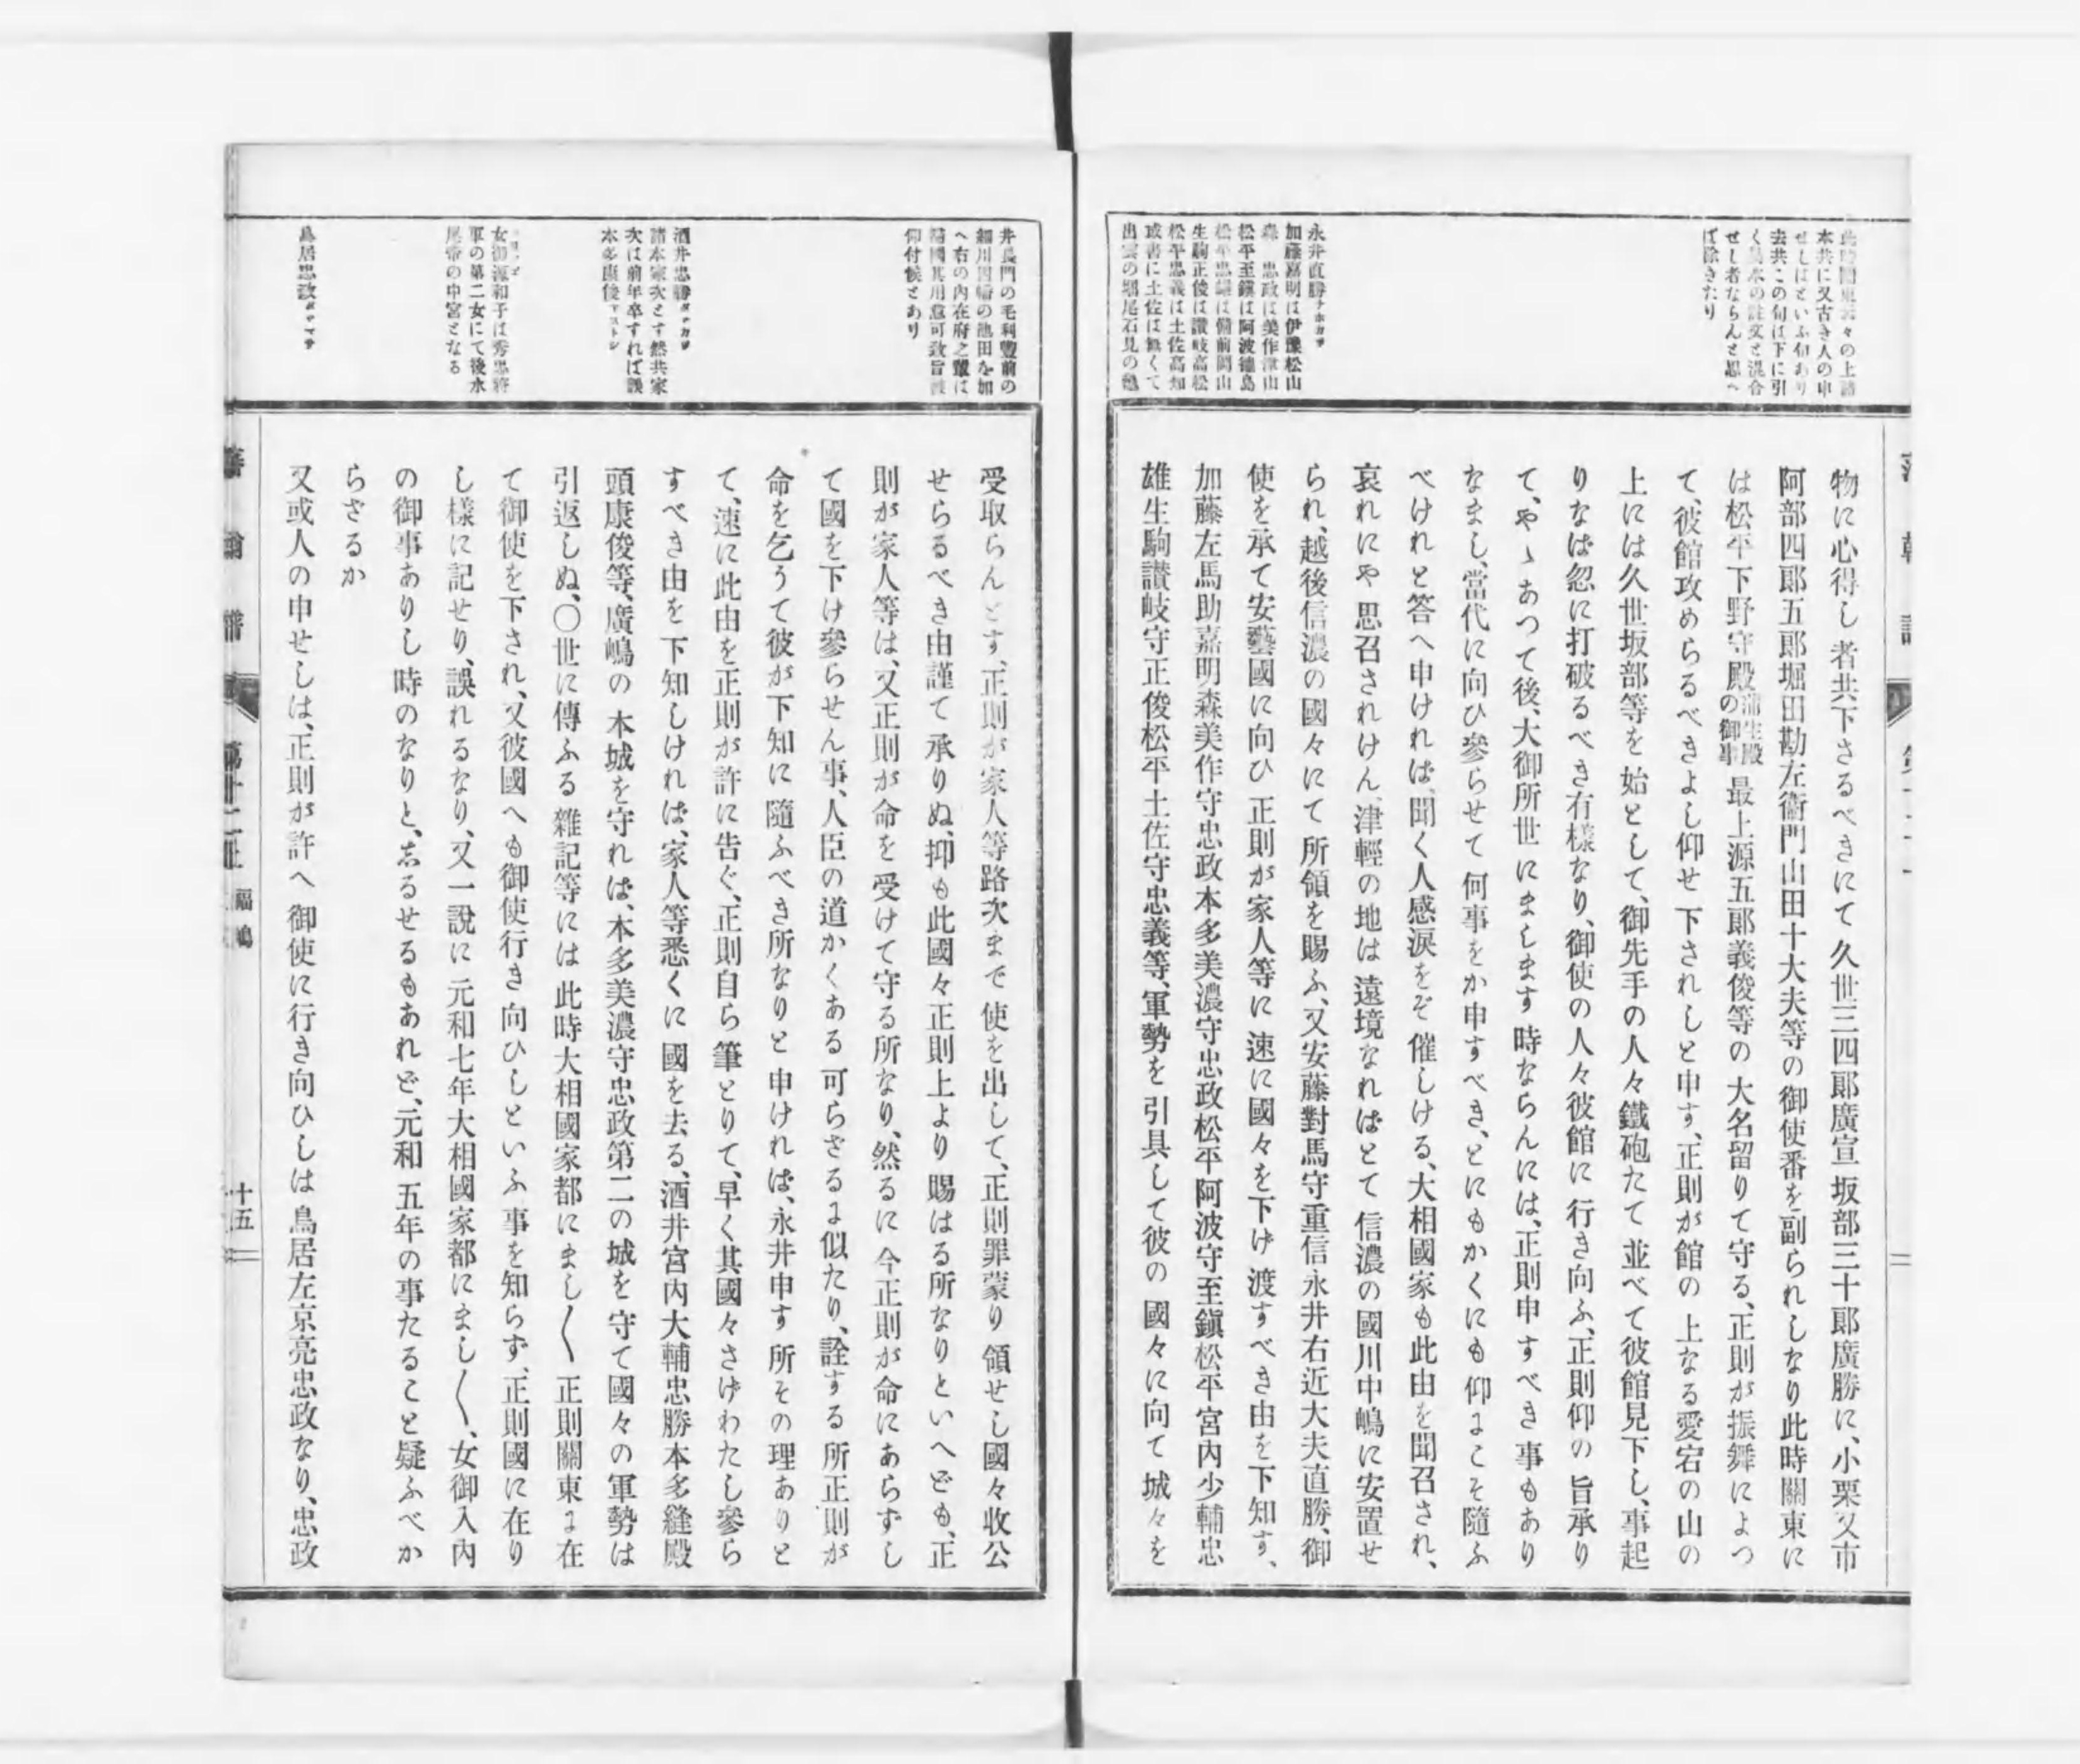 本共に又古き人の申
せしはといふ句あり
去共この句は下に引
く異本の註文と混合
せし者ならんと思へ
ば除きたり
永井直勝ナホカツ
加藤嘉明は伊豫松山
森 忠政は美作津山
松平至鎭は阿波德島
松平忠雄は備前岡山
生駒正俊は讃岐高松
松平忠義は土佐高知
或書に土佐は無くて
出雲の堀尾石見の龜
物に心得し者共下さるべきにて久世三四郞廣宣坂部三十郞廣勝に、小栗又市
阿部四郞五郞堀田勘左衞門山田十大夫等の御使番を副られしなり此時關東に
は松平下野守殿蒲生殿の御事最上源五郞義俊等の大名留りて守る、正則が振舞によつ
て、彼館攻めらるべきよし仰せ下されしと申す、正則が館の上なる愛宕の山の
上には久世坂部等を始として、御先手の人々鐵砲たて並べて彼館見下し、事起
りなは忽に打破るべき有樣なり、御使の人々彼館に行き向ふ、正則仰の旨承り
て、やゝあつて後、大御所世にまします時ならんには、正則申すべき事もあり
なまし、當代に向ひ參らせて何事をか申すべき、とにもかくにも仰よこそ隨ふ
べけれと答へ申ければ、聞く人感淚をぞ催しける、大相國家も此由を聞召され、
哀れにや思召されけん、津輕の地は遠境なればとて信濃の國川中嶋に安置せ
られ、越後信濃の國々にて所領を賜ふ、又安藤對馬守重信永井右近大夫直勝、御
使を承て安藝國に向ひ正則が家人等に速に國々を下け渡すべき由を下知す、
加藤左馬助嘉明森美作守忠政本多美濃守忠政松平阿波守至鎭松平宮内少輔忠
雄生駒讃岐守正俊松平土佐守忠義等、軍勢を引具して彼の國々に向て城々を
井長門の毛利豐前の
細川因幡の池田を加
へ右の内在府之輩は
歸國其用意可致旨被
仰付候とあり
酒井忠勝タヾカツ
諸本家次とす然共家
次は前年卒すれば誤
本多康俊ヤストシ
女御源和子は秀忠將
軍の第二女にて後水
尾帝の中宮となる
鳥居忠政タヾマサ
受取らんとす、正則が家人等路次まで使を出して、正則罪蒙り領せし國々收公
せらるべき由謹て承りぬ、抑も此國々正則上より賜はる所なりといへども、正
則が家人等は、又正則が命を受けて守る所なり、然るに今正則が命にあらずし
て國を下け參らせん事、人臣の道かくある可らざるよ似たり、詮する所正則が
命を乞うて彼が下知に隨ふべき所なりと申ければ、永井申す所その理ありと
て、速に此由を正則が許に告ぐ、正則自ら筆とりて、早く其國々さけわたし參ら
すべき由を下知しければ、家人等悉くに國を去る、酒井宮内大輔忠勝本多縫殿
頭康俊等、廣嶋の本城を守れば、本多美濃守忠政第二の城を守て國々の軍勢は
引返しぬ、〇世に傳ふる雜記等には此時大相國家都にまし〱正則關東よ在
て御使を下され、又彼國へも御使行き向ひしといふ事を知らず、正則國に在り
し樣に記せり、誤れるなり、又一說に元和七年大相國家都にまし〱、女御入内
の御事ありし時のなりと、志るせるもあれど、元和五年の事たること疑ふべか
らざるか
又或人の申せしは、正則が許へ御使に行き向ひしは鳥居左京亮忠政なり、忠政
藩翰譜
福嶋
十五